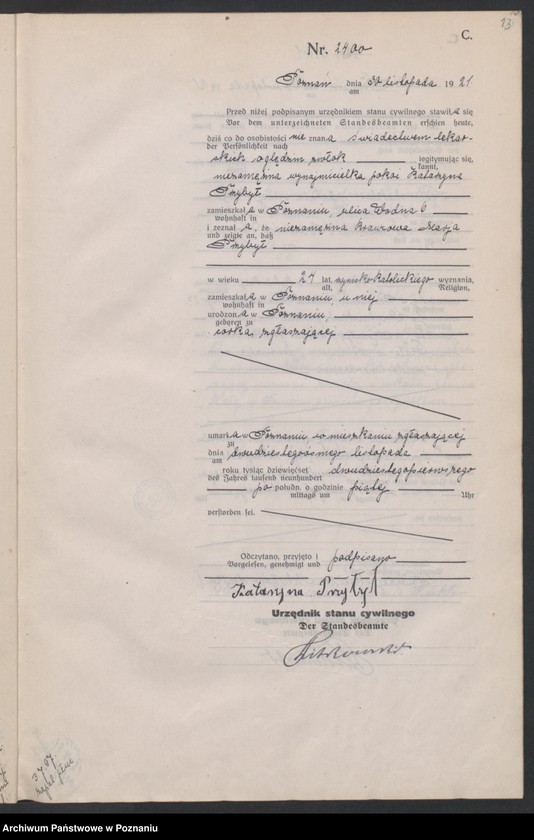 13
C.
Nr. 2400
Poznań dnia 30 listopada 1921
am
Przed niżej podpisanym urzędnikiem stanu cywilnego stawiła się
Vor dem unterzeichneten Standesbeamten erschien heute,
dziś co do osobistości nie znana świadectwem lekar-
der Persönlichkeit nach
skich oględzin zwłok legitymując się,
kannt,
niezamężna wynajmicielka pokoi Katarzyna
Przybył
zamieszkała w Poznaniu, ulica Wodna 6
wohnhaft in
i zeznała, że niezamężna krawcowa Marja
und zeigte an, daß
Przybył
w wieku 24 lat, rzymsko katolickiego wyznania,
alt, Religion,
zamieszkała w Poznaniu, u niej
wohnhaft in
urodzona w Poznaniu,
geboren zu
córka zgłaszającej
umarła w Poznaniu, w mieszkaniu zgłaszającej
zu
dnia dwudziestegoósmego listopada
am
roku tysiąc dziewięćset dwudziestegopierwszego
des Jahres tausend neunhundert
po połudn. o godzinie piątej
mittags um Uhr
verstorben sei.
Odczytano, przyjęto i podpisano
Vorgelesen, genehmigt und
Katarzyna Przybył
Urzędnik stanu cywilnego
Der Standesbeamte
Archiwum Państwowe w Poznaniu